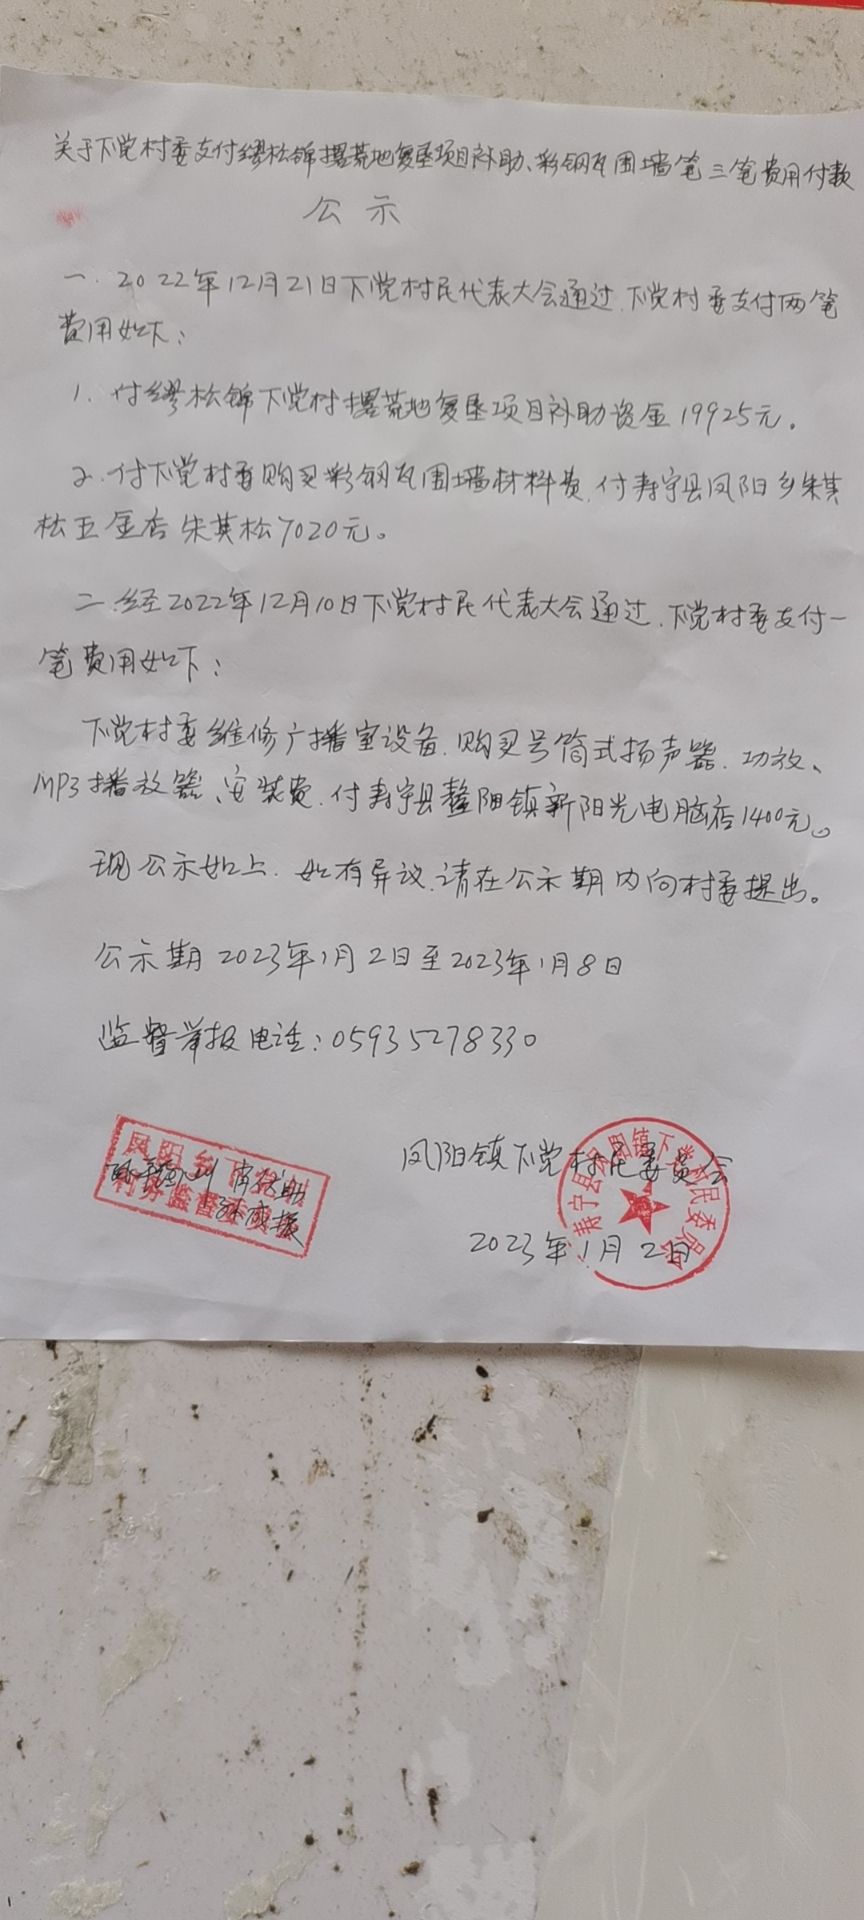 关于下党村委支付缪松锦撂荒地复垦项目补助、彩钢瓦围墙笔三笔费用付款
公示
一.2022年12月21日下党村民代表大会通过.下党村委支付两笔
费用如下:
1.付缪松锦下党村撂荒地复垦项目补助资金19925元。
2.付下党村委购买彩钢瓦围墙材料费.付寿宁县凤阳乡朱其
松五金店朱其松7020元。
二.经2022年12月10日下党村民代表大会通过.下党村委支付一
笔费用如下:
下党村委维修广播室设备.购买号筒式扬声器.功放、
MP3播放器、安装费.付寿宁县鳌阳镇新阳光电脑店1400元。
现公示如上.如有异议.请在公示期内向村委提出。
公示期2023年1月2日至2023年1月8日
监督举报电话:05935278330
凤阳镇下党村民委员会
2023年1月2日
寿宁县凤阳镇下党村民委员会
凤阳乡下党村
村务监督委员会